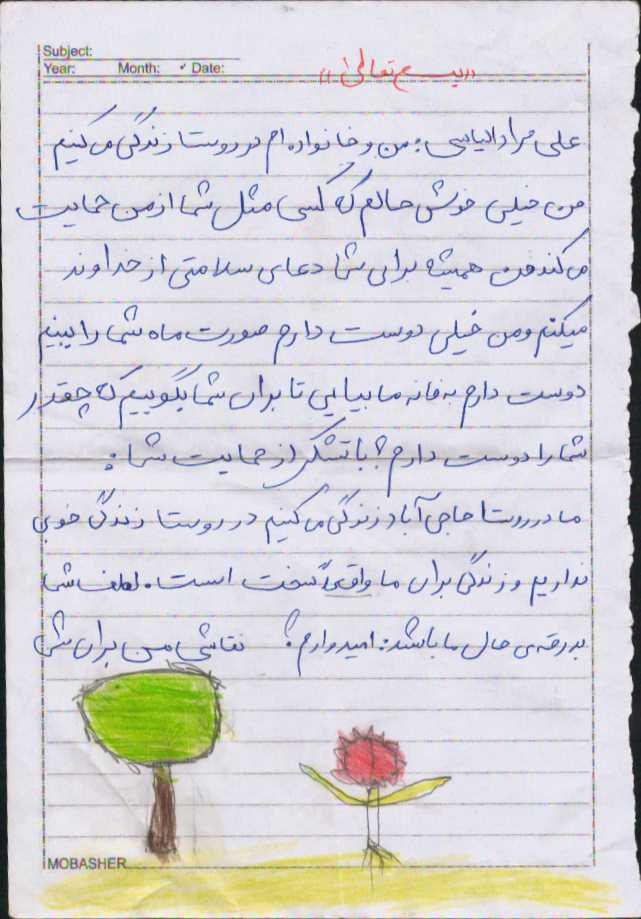 Subject:
Year: Month: Date:
«بسمه تعالی»
علی مراد الیاسی: من و خانواده ام در روستا زندگی می کنیم
من خیلی خوش حالم که کسی مثل شما از من حمایت
می کند من همیشه برای شما دعای سلامتی از خداوند
میکنم و من خیلی دوست دارم صورت ماه شما را ببینم
دوست دارم به خانه ما بیایی تا برای شما بگوییم که چقدر
شما را دوست دارم؟ با تشکر از حمایت شما:
ما در روستا حاجی آباد زندگی می کنیم در روستا زندگی خوبی
نداریم و زندگی برای ما واقعاً سخت است. لطف شما
بدرقه ی حال ما باشد: امیدوارم؟ نقاشی من برای شما
MOBASHER